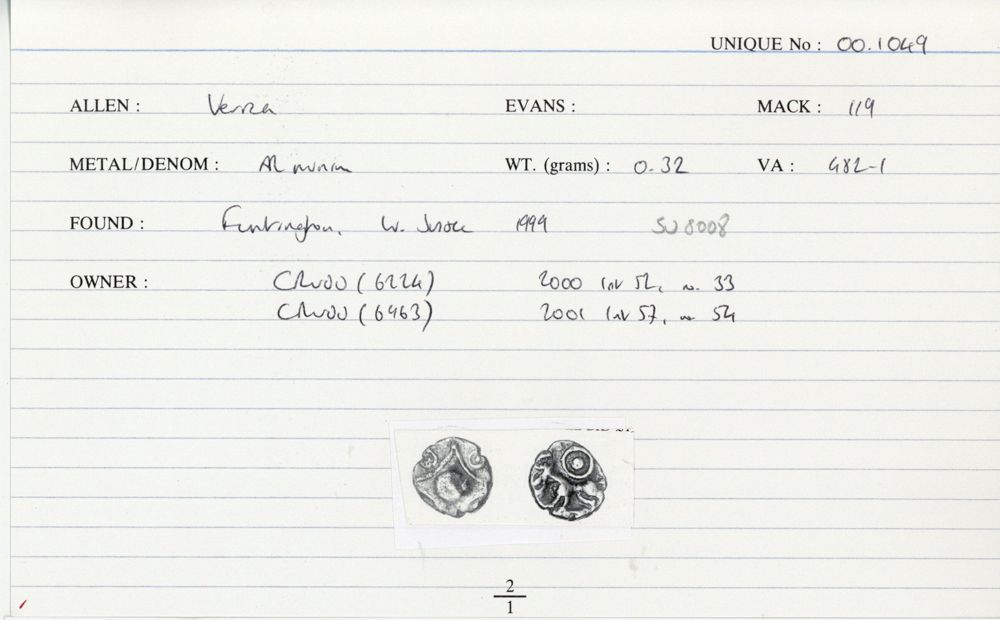 UNIQUE No : 00.1049
ALLEN : Verica EVANS : MACK : 119
METAL/DENOM : AR minim WT. (grams) : 0.32 VA : 482-1
FOUND : Funtington, W. Sussex 1999 SU 8008
OWNER : (6224) 2000 no. 33
(6463) 2001 no. 54
2
1